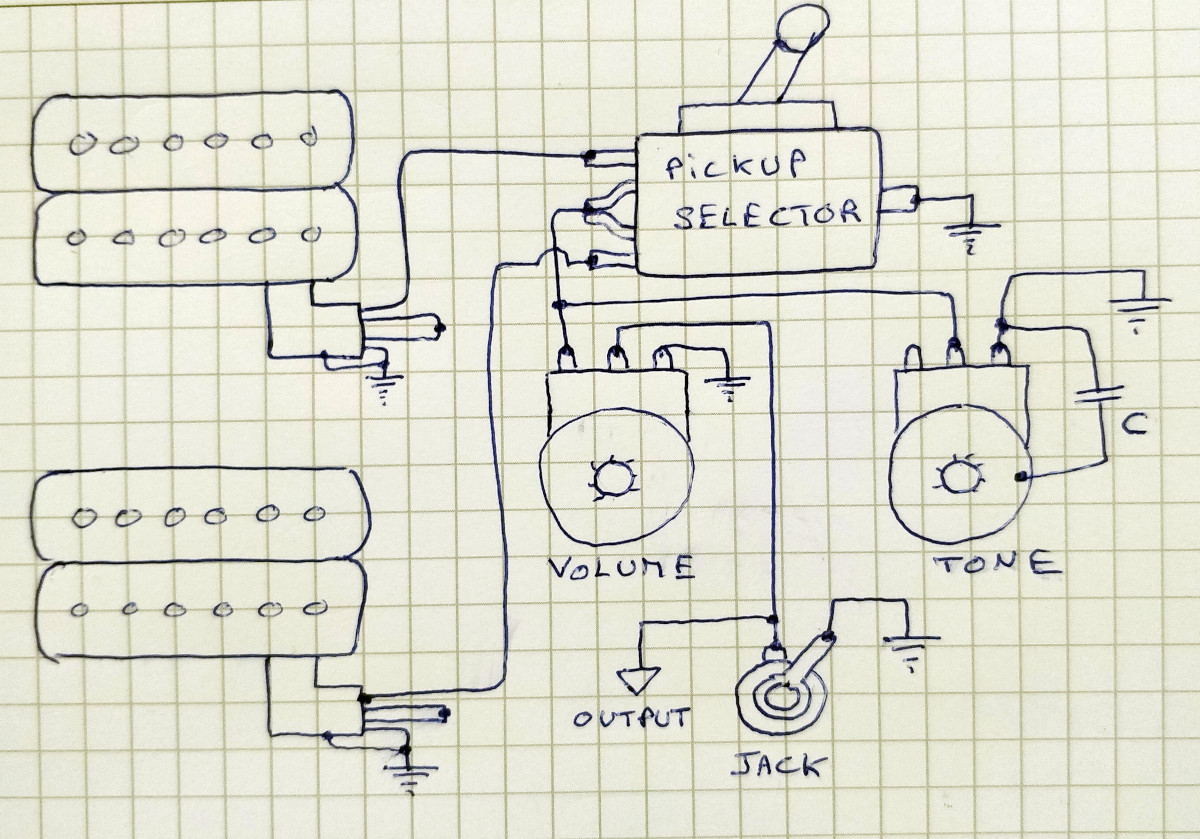 PiCKUP
SELECTOR
C
VOLUME
TONE
OUTPUT
JACK